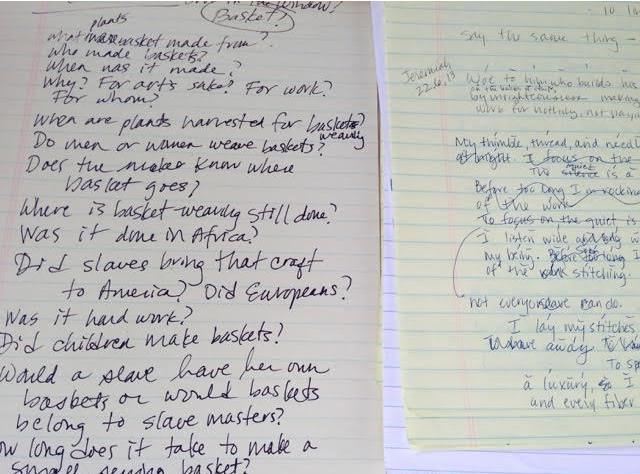 in the window!
Basket?
plants
what basket made from?
who made baskets?
when was it made?
Why? For arts sake? For work?
For whom?
when are plants harvested for baskets?
weaving
Do men or women weave baskets?
Does the maker know where
basket goes?
Where is basket weaving still done?
Was it done in Africa?
Did slaves bring that craft
to America? Did Europeans?
Was it hard work?
Did children make baskets?
Would a slave have her own
baskets or would baskets
belong to slave masters?
ow long does it take to make a
small sewing basket?
10
say the same thing -
Jeremiah
22:6,13
Woe to him who builds his
by unrighteousness making
work for nothing, not payin
My thimble, thread, and needl
bright. I focus on the
quiet
The silence is a
Before too long I'm rockin
of the work
To focus on the quiet is
I listen wide and
my being. Before too long I
of the stitching.
not every slave can do.
I lay my stitches
To
To sp
a luxury, I
and every fiber